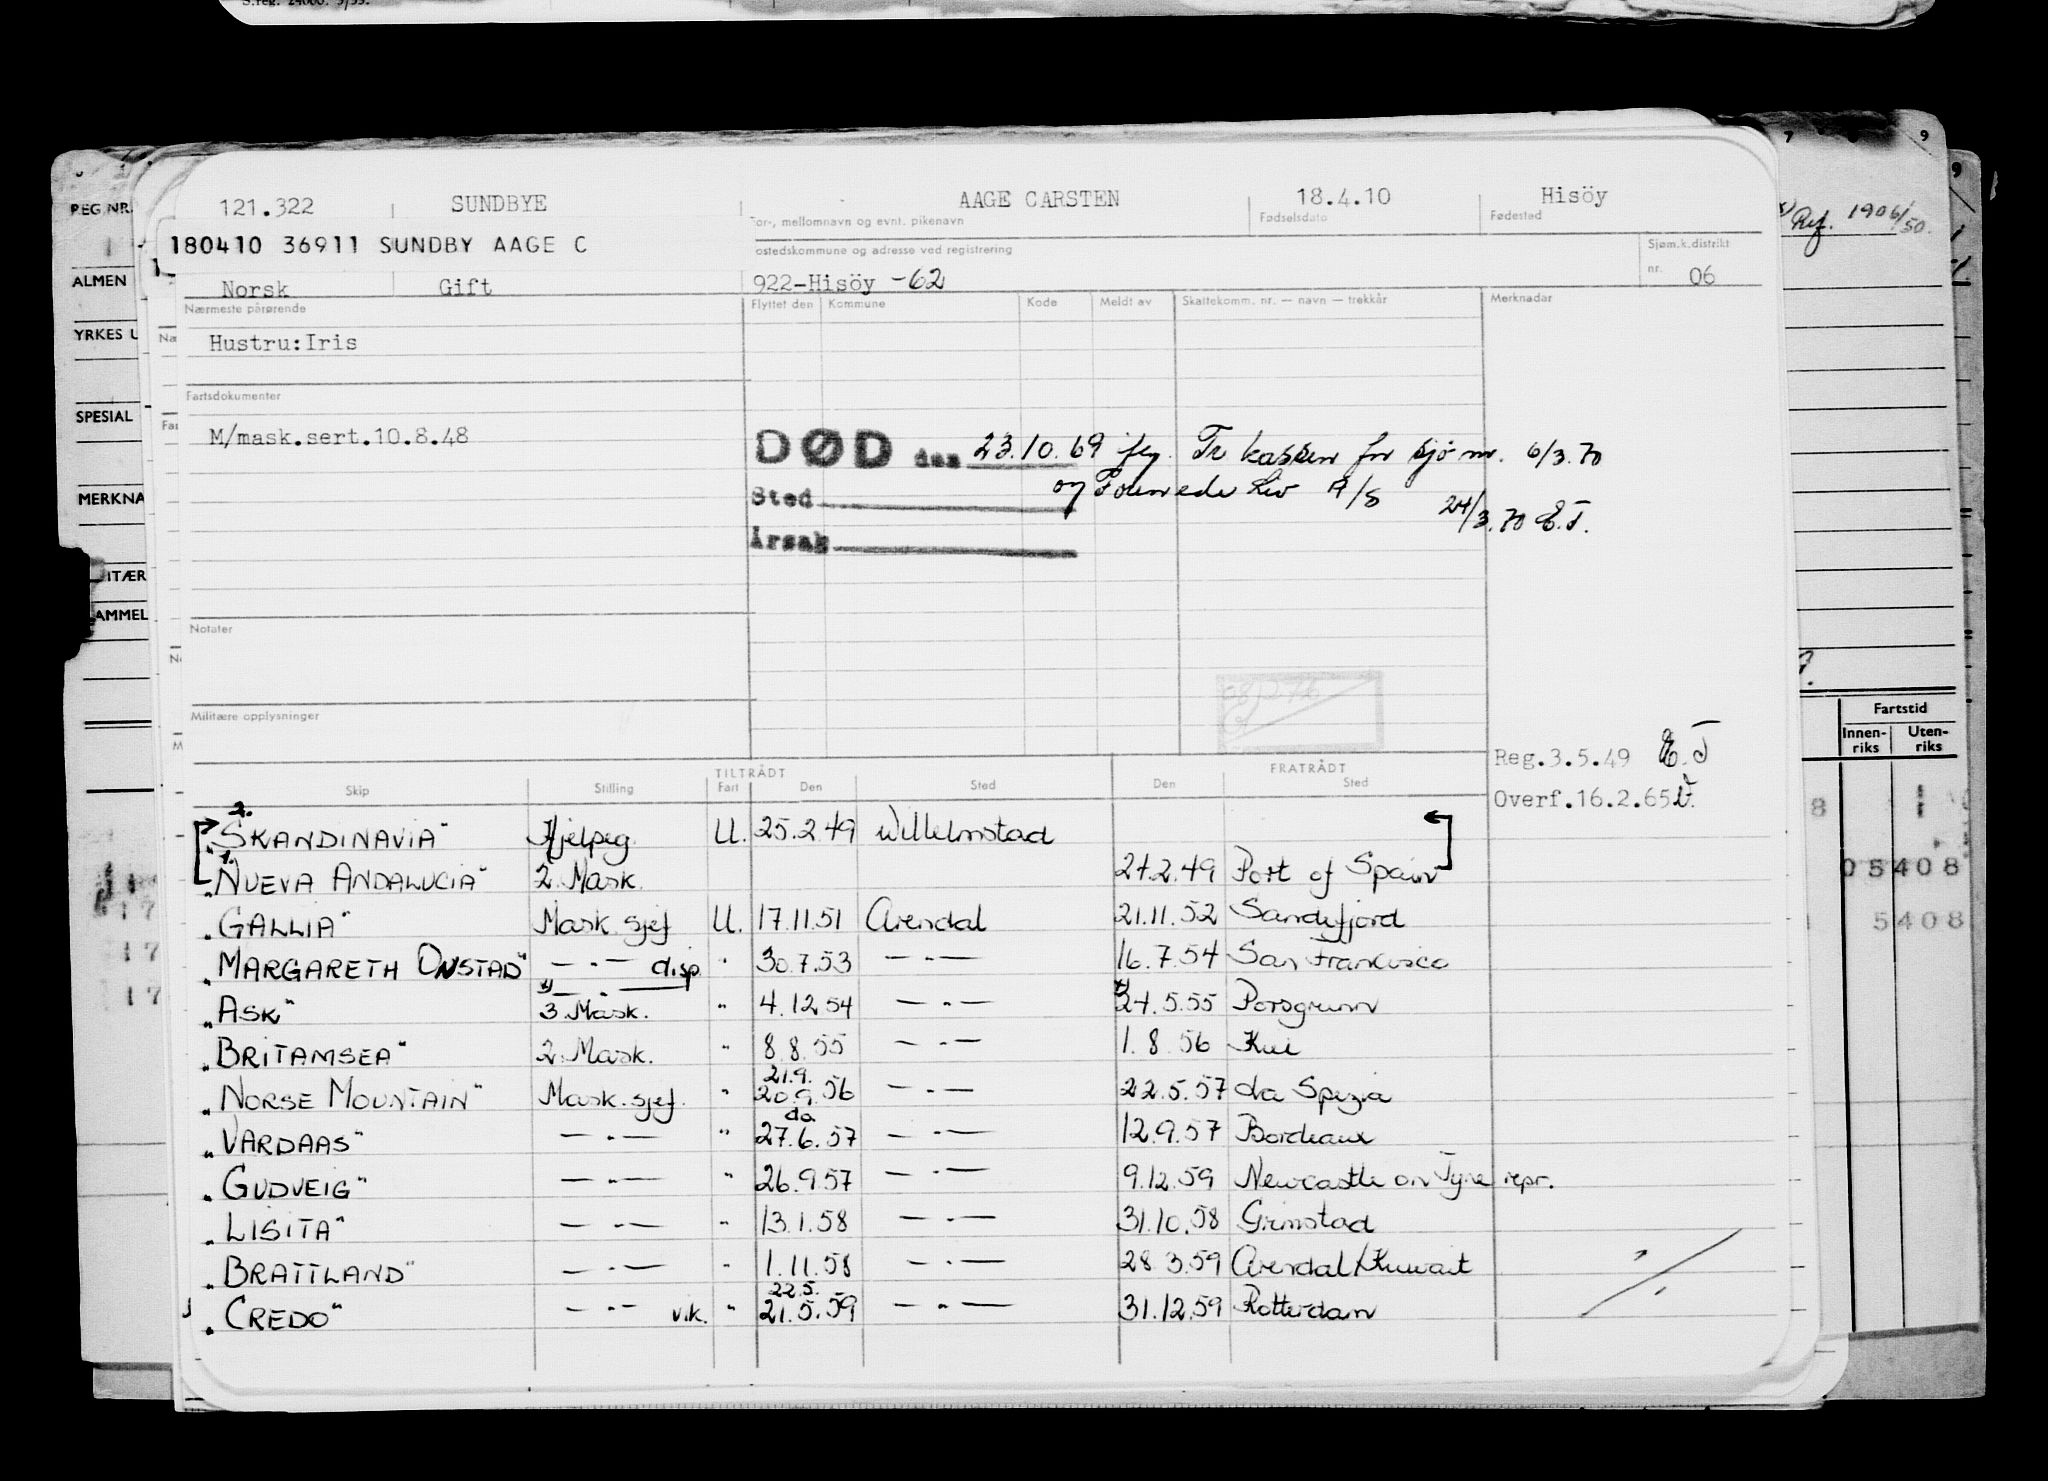 S.reg. 24000. 5/55.
7 9
121.322 SUNDBYE AAGE CARSTEN 18.4.10 Hisöy
REG.NR. For-, mellomnavn og evnt. pikenavn Fødselsdato Fødested
Ref. 1906/50.
180410 36911 SUNDBY AAGE C
ostedskommune og adresse ved registrering Sjøm.k.distrikt
nr. 06
ALMEN
Norsk Gift 922-Hisöy -62
Nærmeste pårørende Flyttet den Kommune Kode Meldt av Skattekomm. nr. — navn — trekkår Merknader
YRKES U
Hustru:Iris
Fartsdokumenter
SPESIAL
M/mask.sert.10.8.48
DØD den 23.10.69 flg. Tr kassen for sjömr. 6/3.70
MERKNA
Sted og Liv A/S 24/3.70 E.T.
Årsak
ITÆR
AMMEL
Notater
Militære opplysninger
Fartstid
Innen-riks Uten-riks
Reg.3.5.49 E.T
Overf.16.2.65
TILTRÅDT FRATRÅDT
Skip Stilling Fart Den Sted Den Sted
2.
"SKANDINAVIA" Hjelpeg. U. 25.2.49 Willelmstad
1.
"NUEVA ANDALUCIA" 2. Mask. 27.2.49 Port of Spain
05408
"GALLIA" Mask sjef U. 17.11.51 Arendal 21.11.52 Sandefjord
5408
"MARGARETH ONSTAD" — " — disp. " 30.7.53 — " — 16.7.54 San Francisco
x) — " —
"ASK" 3. Mask. " 4.12.54 — " — x) 27.5.55 Porsgrunn
"BRITAMSEA" 2. Mask. " 8.8.55 — " — 1.8.56 Kiel
21.9.
"NORSE MOUNTAIN" Mask.sjef. " 20.9.56 — " — 22.5.57 La Spezia
da
"VARDAAS" — " — " 27.6.57 — " — 12.9.57 Bordeaux
"GUDVEIG" — " — " 26.9.57 — " — 9.12.59 Newcastle on Tyne repr.
"LISITA" — " — " 13.1.58 — " — 31.10.58 Grimstad
"BRATTLAND" — " — " 1.11.58 — " — 28.3.59 Arendal/Kuwait
22.5.
"CREDO" — " — vik. " 21.5.59 — " — 31.12.59 Rotterdam